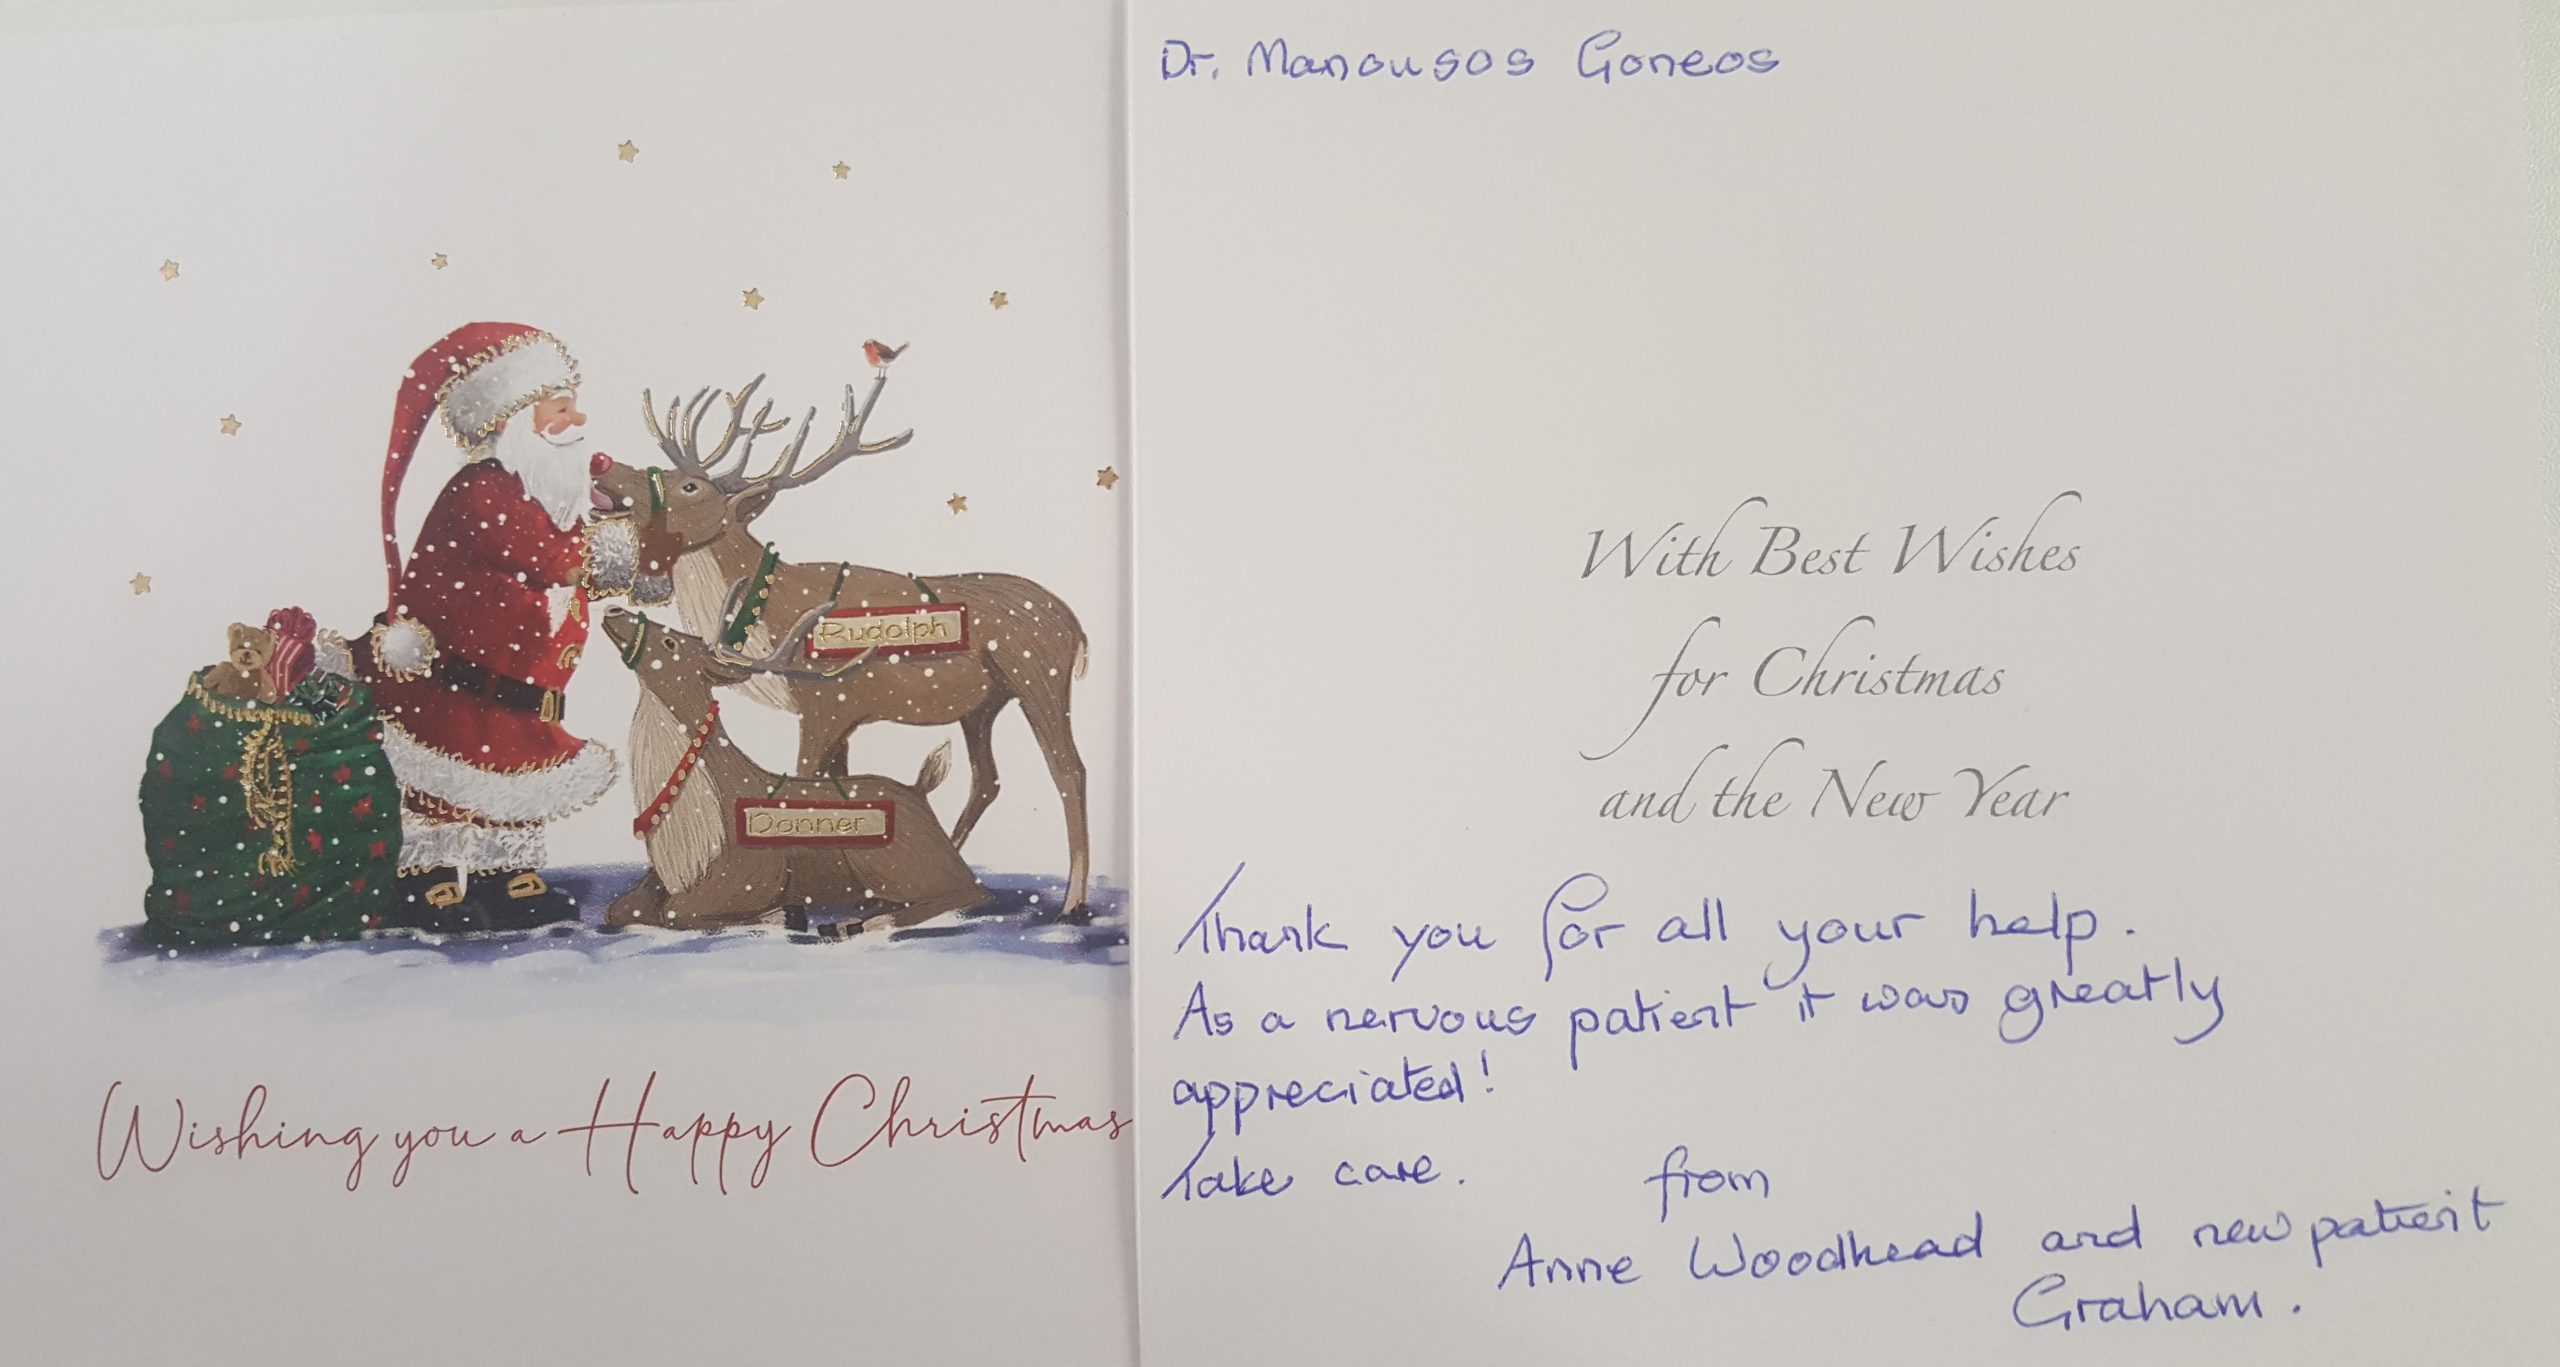 Rudolph
Donner
Wishing you a Happy Christmas
Dr. Manousos Goneos
With Best Wishes
for Christmas
and the New Year
Thank you for all your help.
As a nervous patient it was greatly
appreciated!
Take care. from
Anne Woodhead and new patient
Graham.